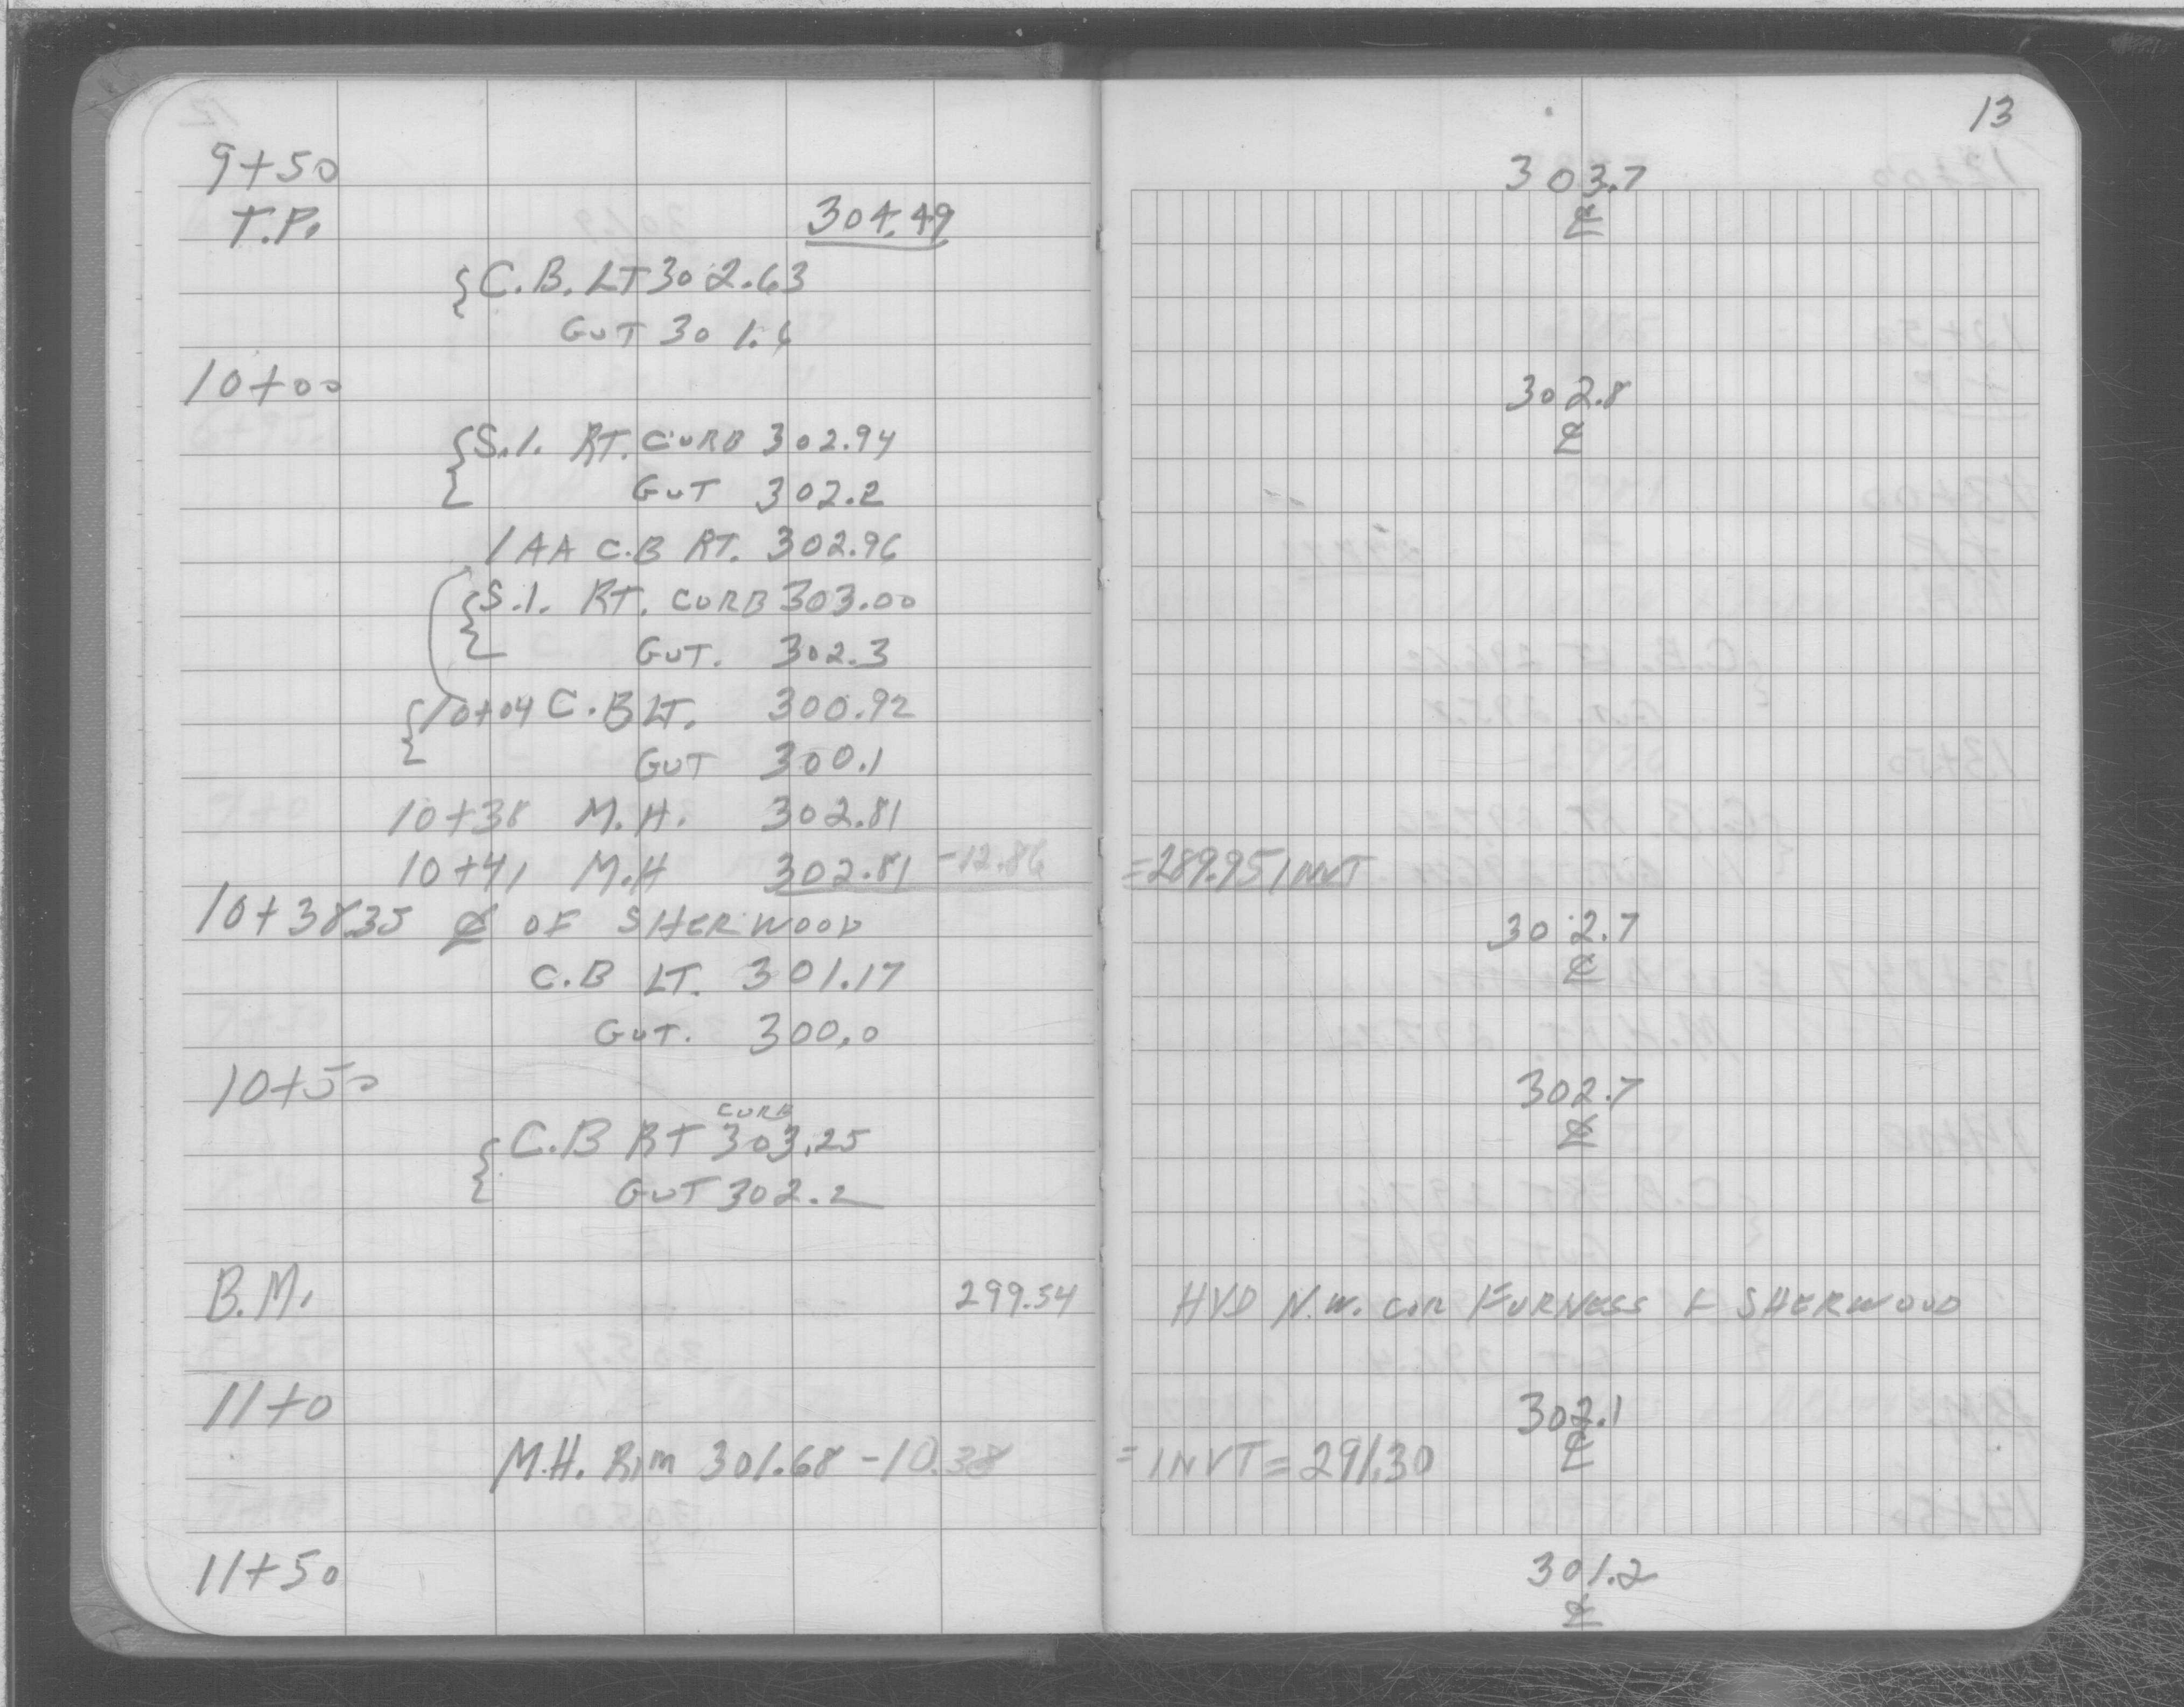 13
9+50 303.7
℄
T.P. 304.49
{C.B. LT 302.63
GUT 301.6
10+00 302.8
℄
{S.I. RT. CURB 302.94
GUT 302.2
1AA C.B RT. 302.96
{S.I. RT. CURB 303.00
GUT. 302.3
{10+04 C.B LT. 300.92
GUT 300.1
10+38 M.H. 302.81
10+41 M.H 302.81 -12.86 =289.95 INVT
10+38.35 ℄ OF SHERWOOD 302.7
℄
C.B LT. 301.17
GUT. 300.0
10+50 302.7
℄
CURB
{C.B RT 303.25
GUT 302.2
B.M. 299.54 HYD N.W. COR FURNESS & SHERWOOD
11+0 302.1
℄
M.H. Rim 301.68 -10.38 = INVT = 291.30
11+50 301.2
℄